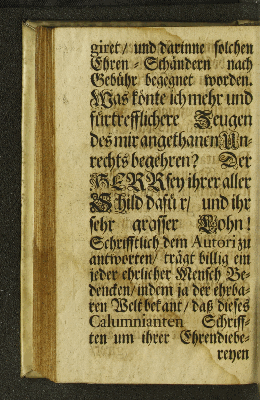 giret / und darinne solchen
Ehren-Schändern nach
Gebühr begegnet worden.
Was könte ich mehr und
fürtrefflichere Zeugen
des mir angethanen Un-
rechts begehren? Der
HERR sey ihrer aller
Schild dafür / und ihr
sehr grosser Lohn!
Schrifftlich dem Autori zu
antworten / trägt billig ein
jeder ehrlicher Mensch Be-
dencken / indem ja der ehrba-
ren Welt bekant / daß dieses
Calumnianten Schriff-
ten um ihrer Ehrendiebe-
reyen